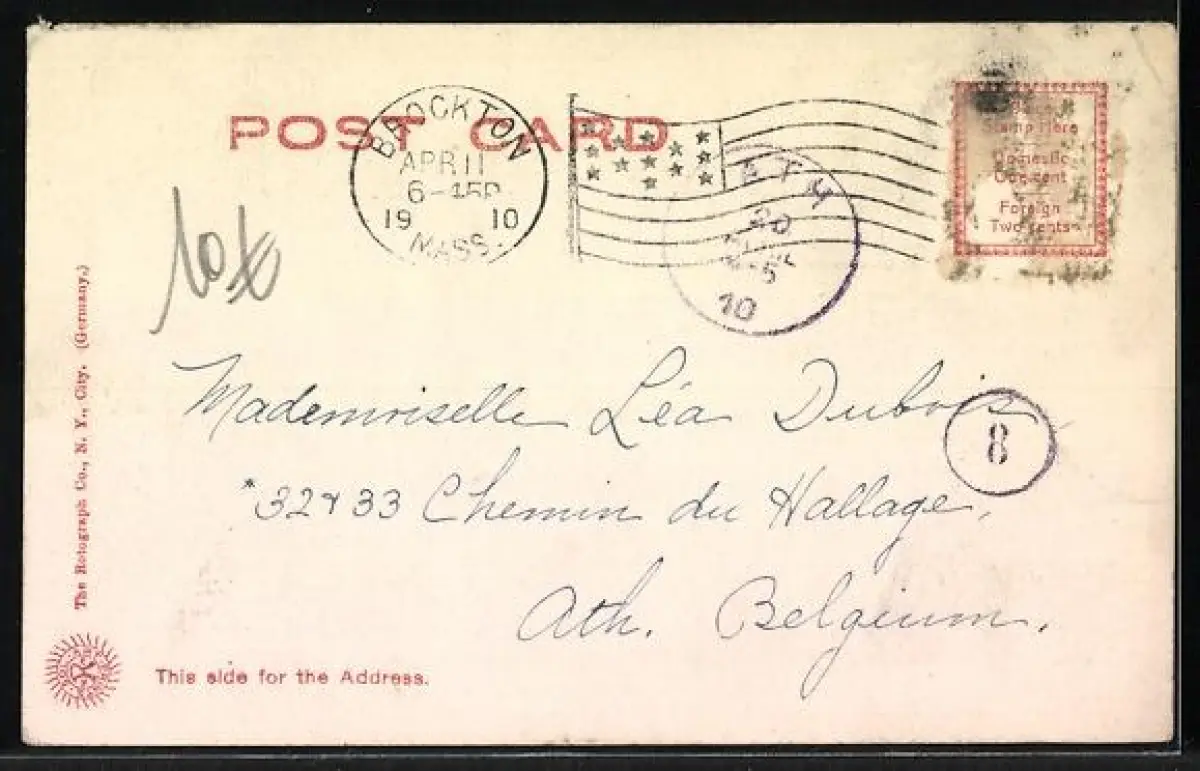 POST CARD
BROCKTON
APR 11
6-45P
19 10
MASS.
Stamp Here
Domestic
One cent
Foreign
Two cents
ATH
20
5
10
Mademoiselle Léa Dubois
8
32 & 33 Chemin du Hallage,
Ath. Belgium.
The Rotograph Co., N. Y., City. (Germany.)
This side for the Address.